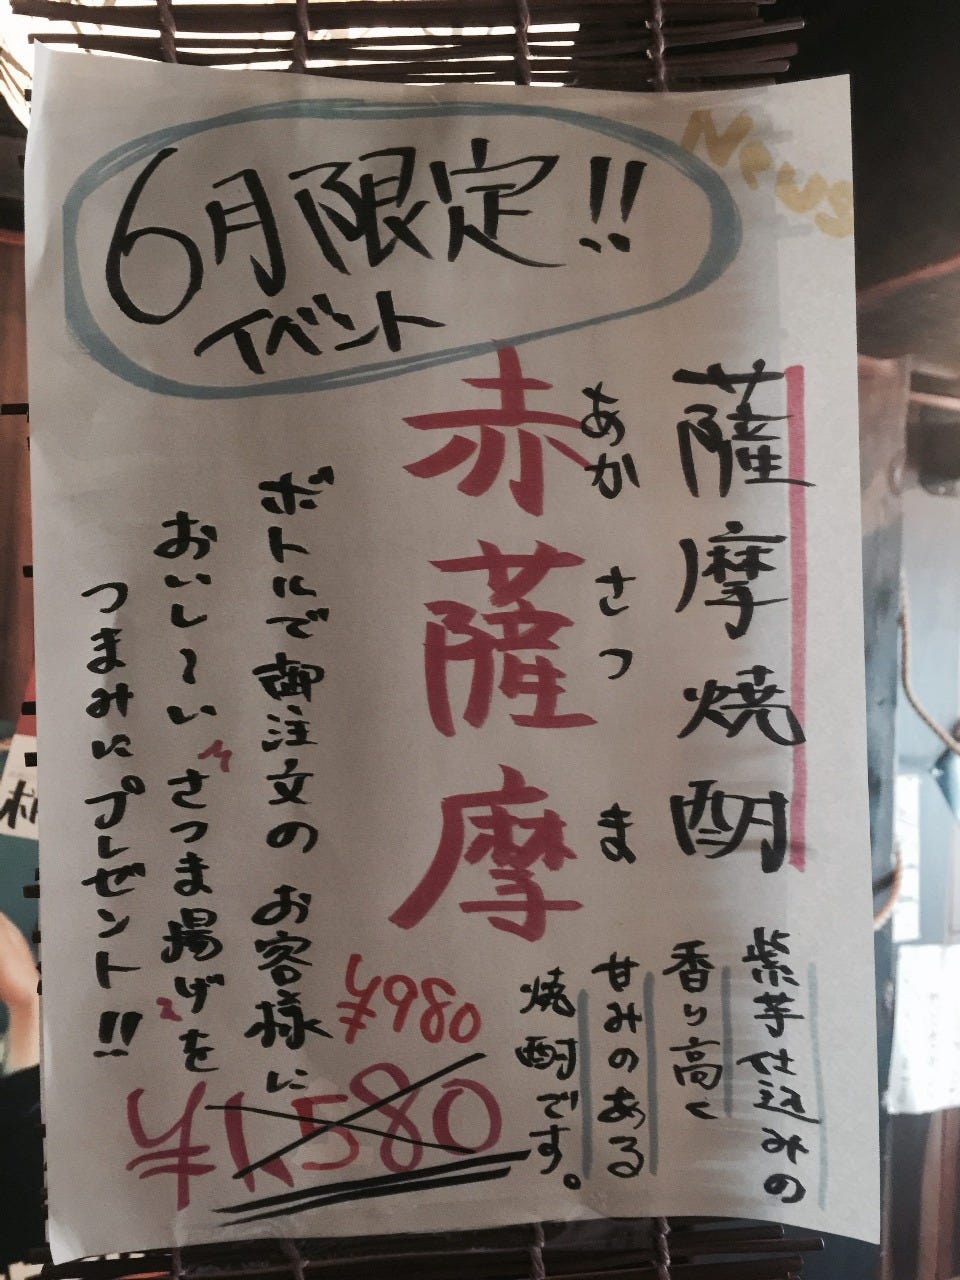 News
6月限定!!
イベント
薩摩焼酎
あかさつま
赤薩摩
紫芋仕込みの
香り高く
甘みのある
焼酎です。
ボトルで御注文のお客様に
おいし〜い"さつま揚げ"を
つまみにプレゼント!!
¥1580